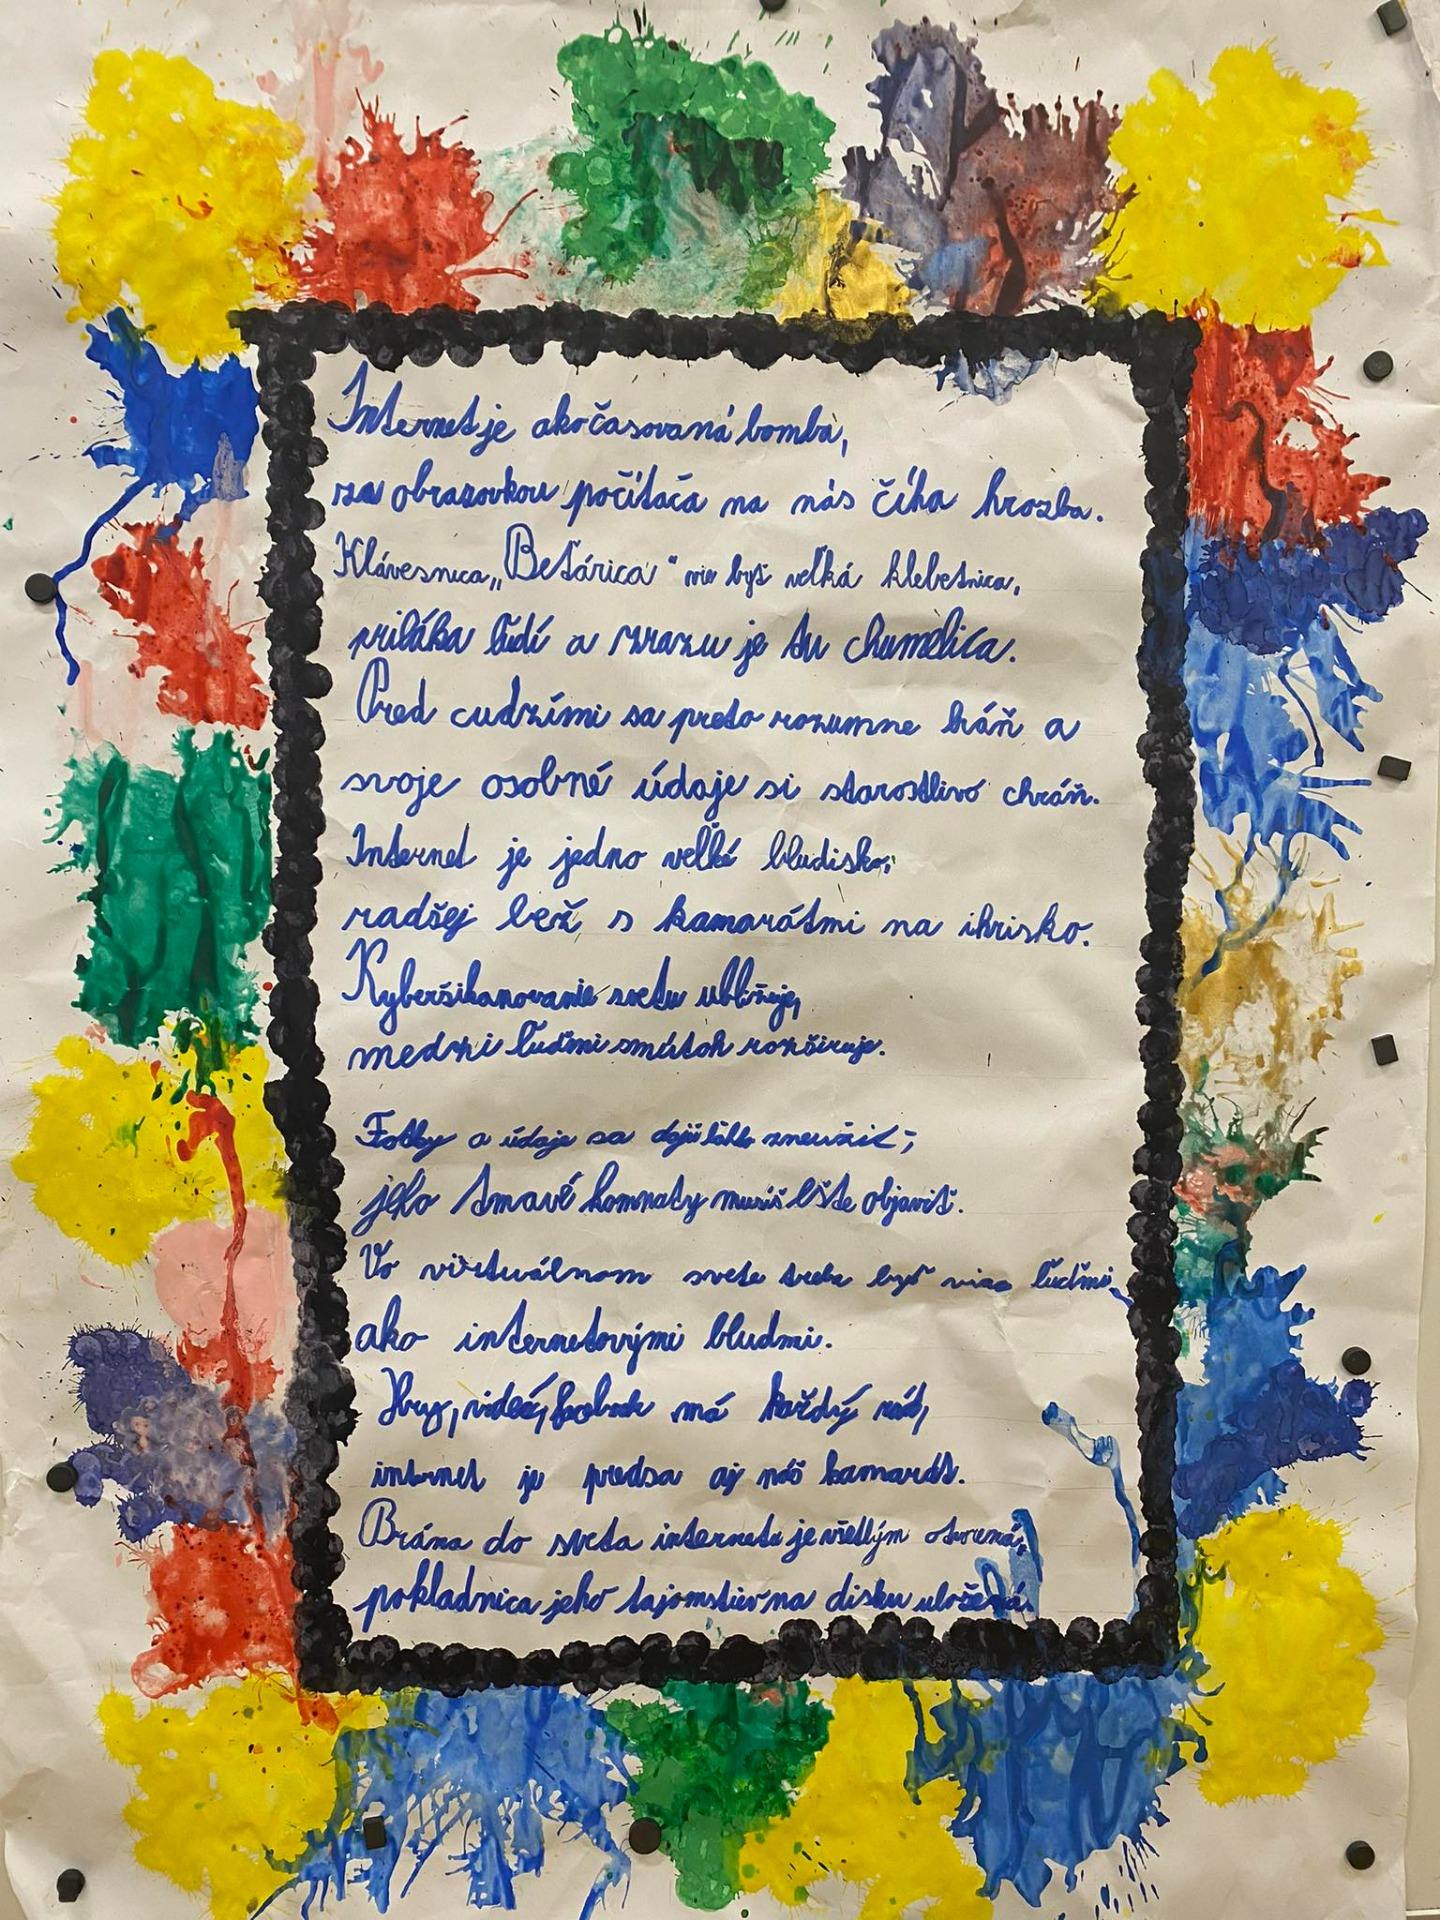 Internet je ako časovaná bomba,
za obrazovkou počítača na nás číha hrozba.
Klávesnica „Beťárica“ vie byť veľká klebetnica,
priláka ľudí a zrazu je tu chumelica.
Pred cudzími sa preto rozumne bráň a
svoje osobné údaje si starostlivo chráň.
Internet je jedno veľké bludisko,
radšej bež s kamarátmi na ihrisko.
Kyberšikanovanie svetu ubližuje,
medzi ľuďmi smútok rozširuje.
Fotky a údaje sa dajú ľahko zneužiť,
jeho tmavé komnaty musíš ešte objaviť.
Vo virtuálnom svete treba byť viac ľuďmi,
ako internetovými bludmi.
Hry, videá, má každý rád,
internet je predsa aj náš kamarát.
Brána do sveta internetu je všetkým otvorená,
pokladnica jeho tajomstiev na disku uložená.